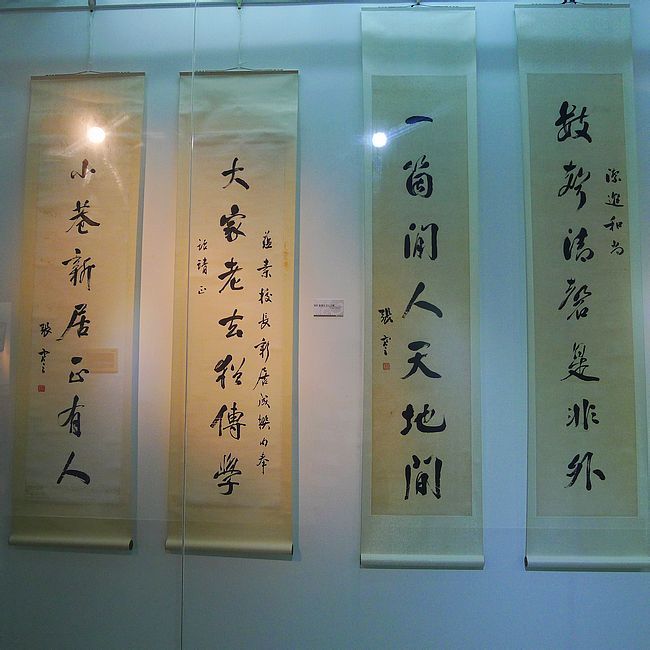 和尚
數聲清磬是非外
一箇閒人天地間
張謇
大家老去猶傳學
蘊素校長新居成撰句奉
請正
小巷新居正有人
張謇